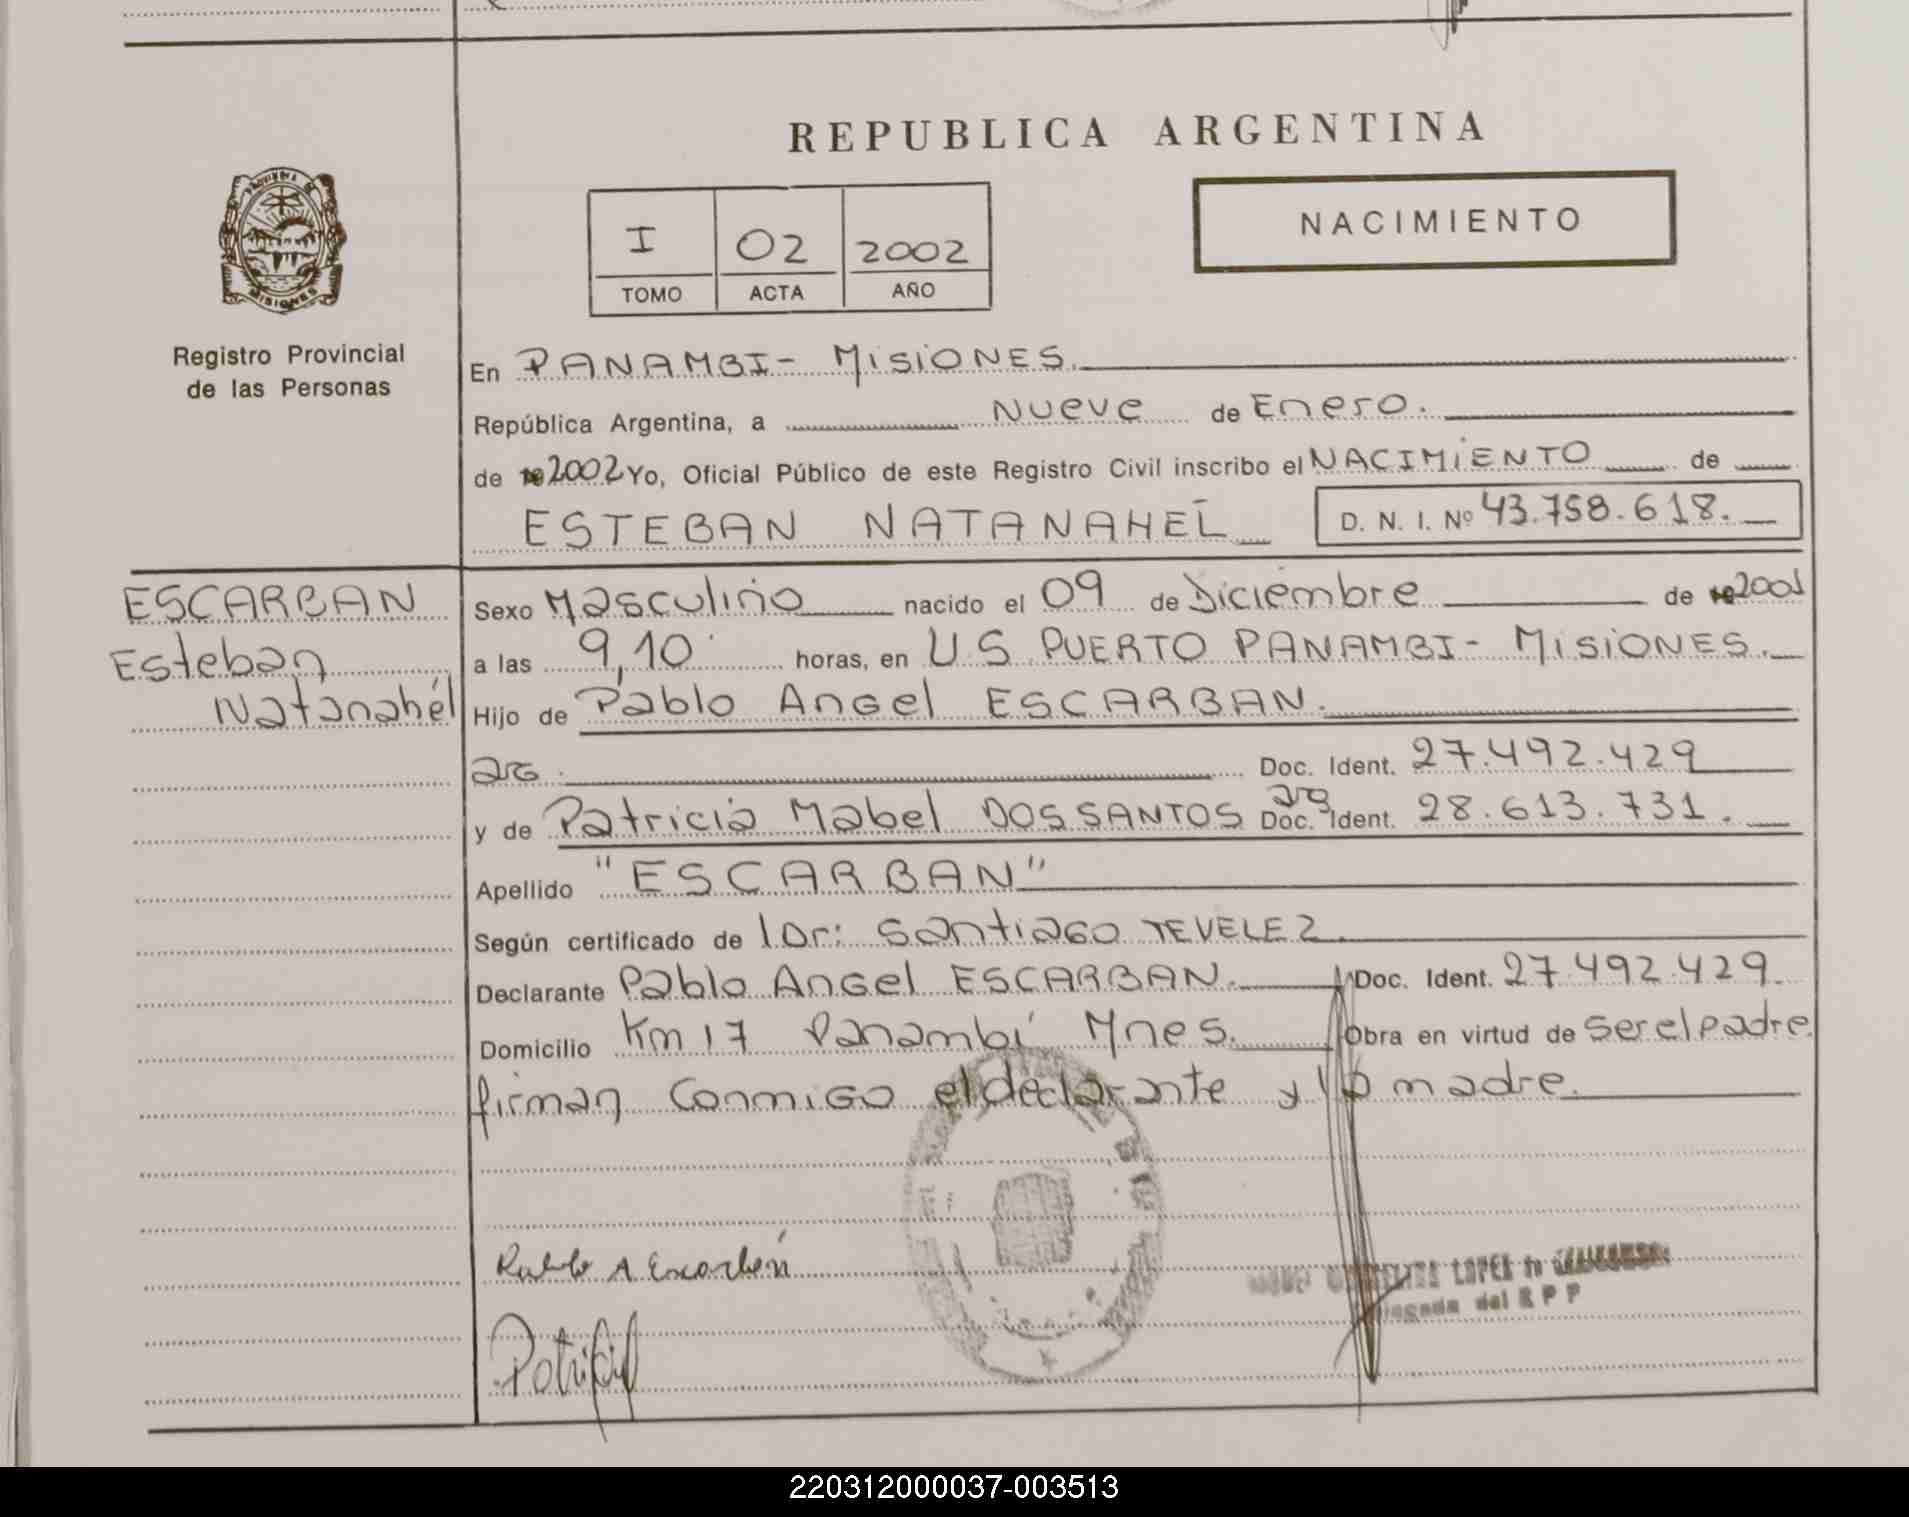 REPUBLICA ARGENTINA
NACIMIENTO
I 02 2002
TOMO ACTA AÑO
Registro Provincial
de las Personas
En PANAMBI - MISIONES.
República Argentina, a Nueve de Enero.
de 2002 Yo, Oficial Público de este Registro Civil inscribo el NACIMIENTO de
ESTEBAN NATANAHEL D. N. I. Nº 43.758.618.
ESCARBAN
Esteban
Natanahél
Sexo Masculino nacido el 09 de Diciembre de 2001
a las 9,10 horas, en U S PUERTO PANAMBI - MISIONES.
Hijo de Pablo Angel ESCARBAN.
arg. Doc. Ident. 27.492.429
y de Patricia Mabel DOSSANTOS arg Doc. Ident. 28.613.731.
Apellido "ESCARBAN"
Según certificado de Dr: Santiago TEVELEZ.
Declarante Pablo Angel ESCARBAN. Doc. Ident. 27.492.429.
Domicilio Km 17 Panambí Mnes. Obra en virtud de ser el padre.
firman conmigo el declarante y la madre.
LOPEZ
del R P P
220312000037-003513